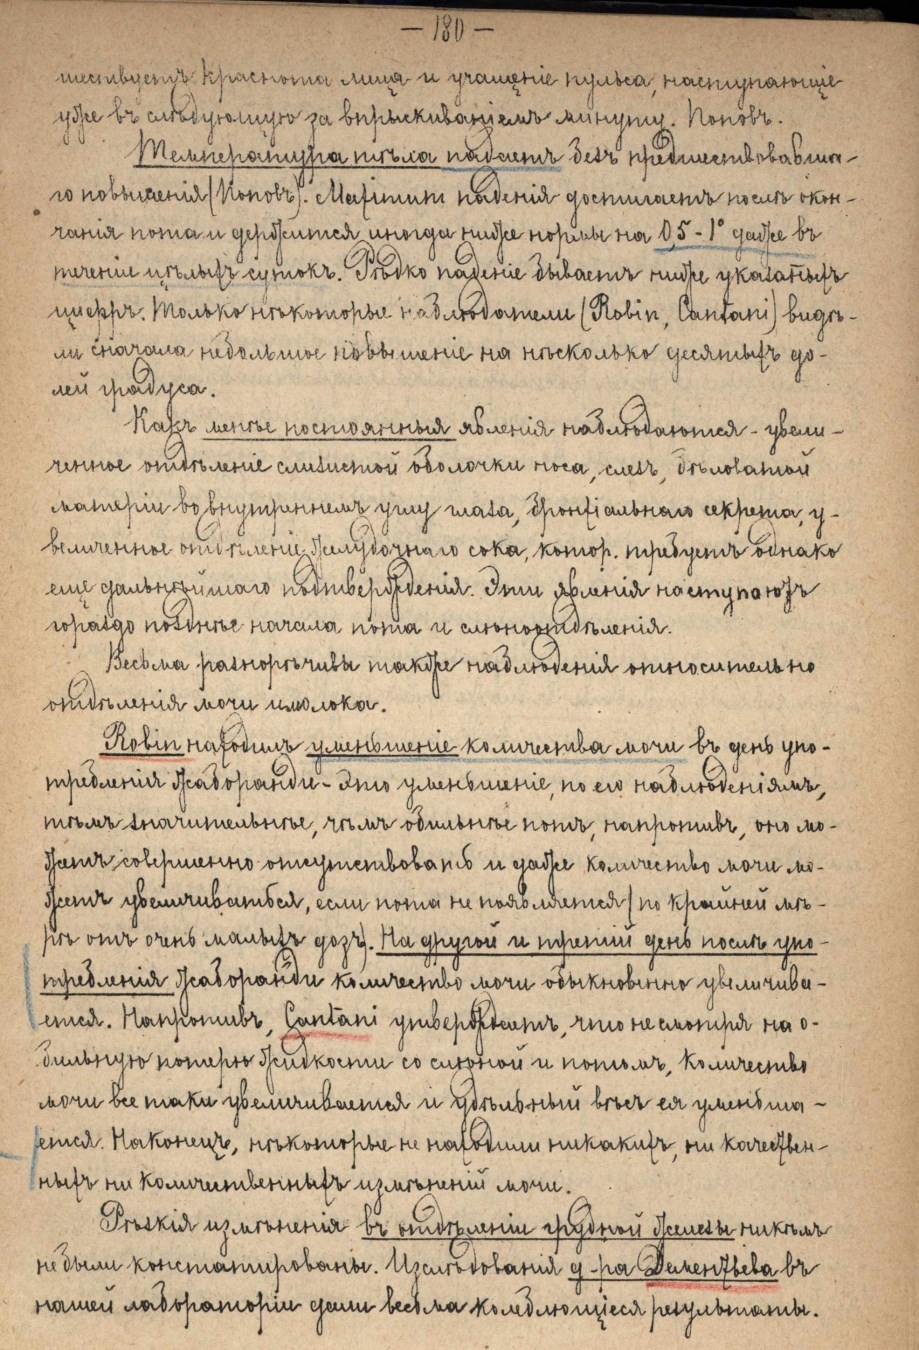 — 180 —
шествуетъ краснота лица и учащеніе пульса, наступающіе
уже въ слѣдующую за впрыскиваніемъ минуту. Поповъ.
Температура тѣла падаетъ безъ предшествовавша-
го повышенія (Поповъ). Maximum паденія достигаетъ послѣ окон-
чанія пота и держится иногда ниже нормы на 0,5-1° даже въ
теченіи цѣлыхъ сутокъ. Рѣдко паденіе бываетъ ниже указаныхъ
цифръ. Только нѣкоторые наблюдатели (Robin, Cantani) видѣ-
ли сначала небольшое повышеніе на нѣсколько десятыхъ до-
лей градуса.
Какъ менѣе постоянныя явленія наблюдаются - увели-
ченное отдѣленіе слизистой оболочки носа, слезъ, бѣловатой
матеріи во внутреннемъ углу глаза, бронхіальнаго секрета, у-
величенное отдѣленіе желудочнаго сока, котор. требуетъ однако
еще дальнѣйшаго подтвержденія. Эти явленія наступаютъ
гораздо позднѣе начала пота и слюноотдѣленія.
Весьма разноречивы также наблюденія относительно
отдѣленія мочи и молока.
Robin находилъ уменьшеніе количества мочи въ день упо-
требленія жаборанди - Это уменьшеніе, по его наблюденіямъ,
тѣмъ значительнѣе, чѣмъ обильнѣе потъ, напротивъ, оно мо-
жетъ совершенно отсутствовать и даже количество мочи мо-
жетъ увеличиваться, если пота не появляется (по крайней мѣ-
рѣ отъ очень малыхъ дозъ). На другой и третій день послѣ упо-
требленія жаборанди количество мочи обыкновенно увеличива-
ется. Напротивъ, Cantani утверждаетъ, что не смотря на о-
бильную потерю жидкости со слюной и потомъ, количество
мочи все таки увеличивается и удѣльный вѣсъ ея уменьша-
ется. Наконецъ, нѣкоторые не находили никакихъ, ни качествен-
ныхъ ни количественныхъ измѣненій мочи.
Рѣзкія измѣненія въ отдѣленіи грудной железы никѣмъ
не были констатированы. Изслѣдованія д-ра Дементьева въ
нашей лабораторіи дали весьма колеблющіеся результаты.